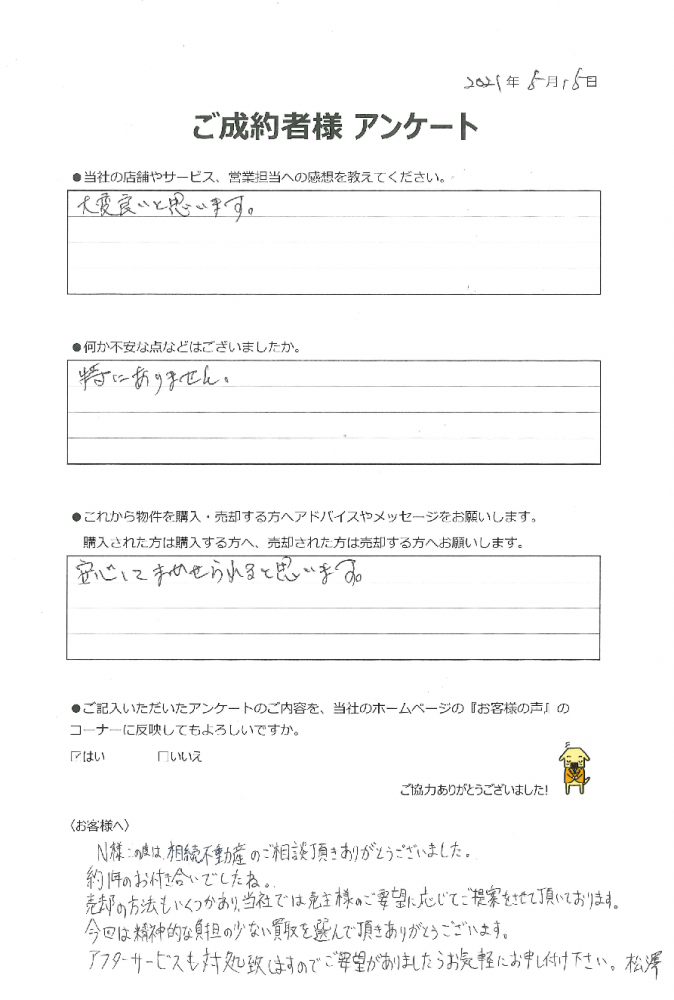 2021年 5月15日
ご成約者様 アンケート
●当社の店舗やサービス、営業担当への感想を教えてください。
大変良いと思います。
●何か不安な点などはございましたか。
特にありません。
●これから物件を購入・売却する方へアドバイスやメッセージをお願いします。
購入された方は購入する方へ、売却された方は売却する方へお願いします。
安心してまかせられると思います。
●ご記入いただいたアンケートのご内容を、当社のホームページの『お客様の声』の
コーナーに反映してもよろしいですか。
☑はい □いいえ
ご協力ありがとうございました!
〈お客様へ〉
N様この度は、相続不動産のご相談頂きありがとうございました。
約1年のお付き合いでしたね。
売却の方法もいくつかあり、当社では売主様のご要望に応じてご提案をさせて頂いております。
今回は精神的な負担の少ない買取を選んで頂きありがとうございます。
アフターサービスも対処致しますのでご要望がありましたらお気軽にお申し付け下さい。 松澤